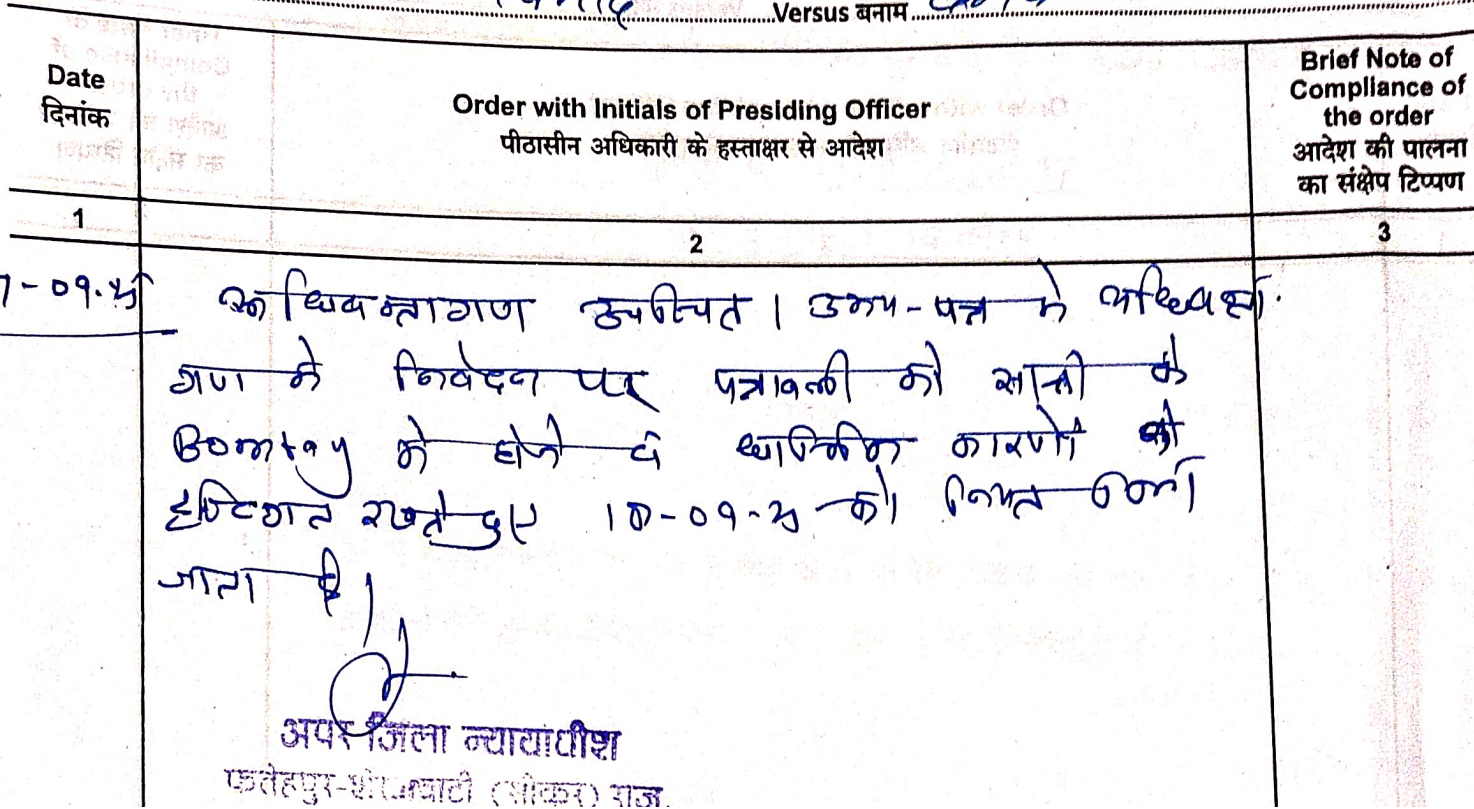 Versus बनाम
Date
दिनांक
Order with Initials of Presiding Officer
पीठासीन अधिकारी के हस्ताक्षर से आदेश
Brief Note of
Compliance of
the order
आदेश की पालना
का संक्षेप टिप्पण
1
2
3
अधिवक्तागण उपस्थित । उभय-पक्ष के अधिवक्ता
गण के निवेदन पर पत्रावली को साक्षी के
Bombay में होने व कारणों को
दृष्टिगत रखते हुए 10-09-25 को नियत किया
जाता है।
अपर जिला न्यायाधीश
फतेहपुर-शेखावाटी (सीकर) राज.